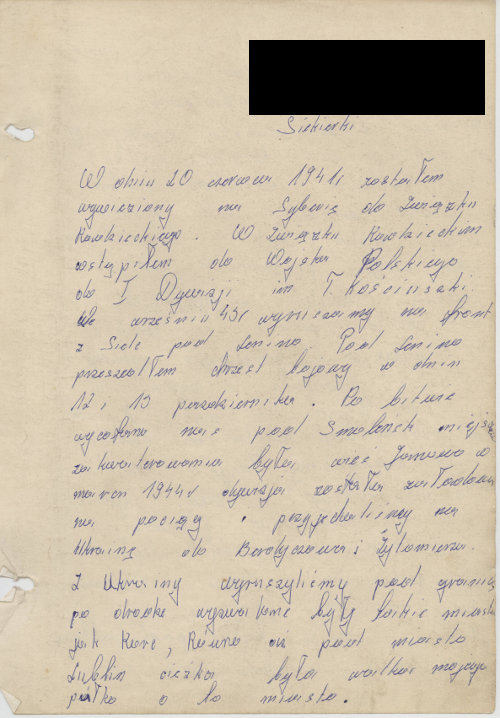 Siekierki
W dniu 20 czerwca 1941r zostałem
wywieziony na Syberię do Związku
Radzieckiego. W Związku Radzieckim
wstąpiłem do Wojska Polskiego
do I Dywizji im T. Kościuszki
We wrześniu 43r wyruszamy na front
z Siele pod Lenino. Pod Lenino
przeszedłem chrzest bojowy w dniu
12 i 13 października. Po bitwie
wycofano nas pod Smoleńsk miejsce
zakwaterowania była wieś w
marcu 1944r dywizja została załadowana
na pociąg i przyjechaliśmy na
Ukrainę do Berdyczowa i Żytomierza.
Z Ukrainy wyruszyliśmy pod granicę
po drodze wyzwalane były takie miasta
jak Równo oraz pod miasto
Lublin ciężka była walka mojego
pułku o to miasto.